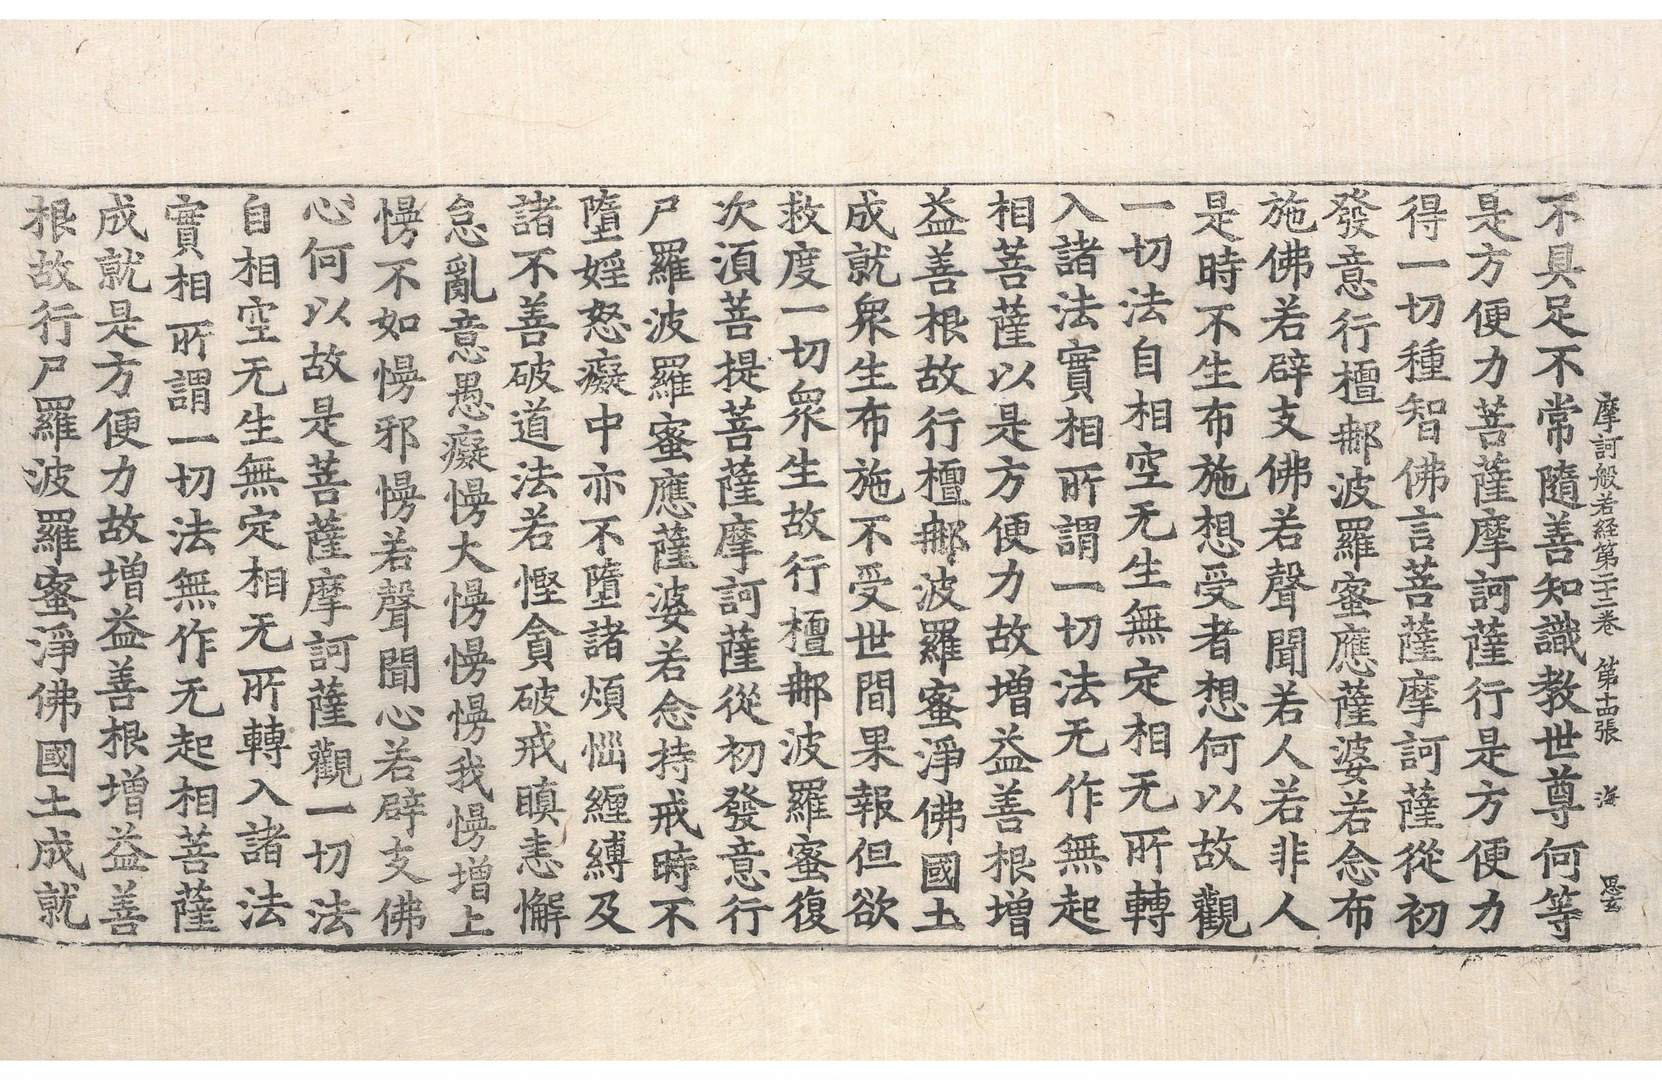 摩訶般若經第二十二卷　第十四張　海
不具足不常隨善知識教世尊何等
是方便力菩薩摩訶薩行是方便力
得一切種智佛言菩薩摩訶薩從初
發意行檀㲚波羅蜜應薩婆若念布
施佛若辟支佛若聲聞若人若非人
是時不生布施想受者想何以故觀
一切法自相空无生無定相无所轉
入諸法實相所謂一切法无作無起
相菩薩以是方便力故增益善根增
益善根故行檀㲚波羅蜜淨佛國土
成就衆生布施不受世間果報但欲
救度一切衆生故行檀㲚波羅蜜復
次湏菩提菩薩摩訶薩從初發意行
尸羅波羅蜜應薩婆若念持戒時不
墮婬怒癡中亦不墮諸煩惱纏縛及
諸不善破道法若慳貪破戒瞋恚懈
怠亂意愚癡慢大慢慢慢我慢增上
慢不如慢邪慢若聲聞心若辟支佛
心何以故是菩薩摩訶薩觀一切法
自相空无生無定相无所轉入諸法
實相所謂一切法無作无起相菩薩
成就是方便力故增益善根增益善
根故行尸羅波羅蜜淨佛國土成就